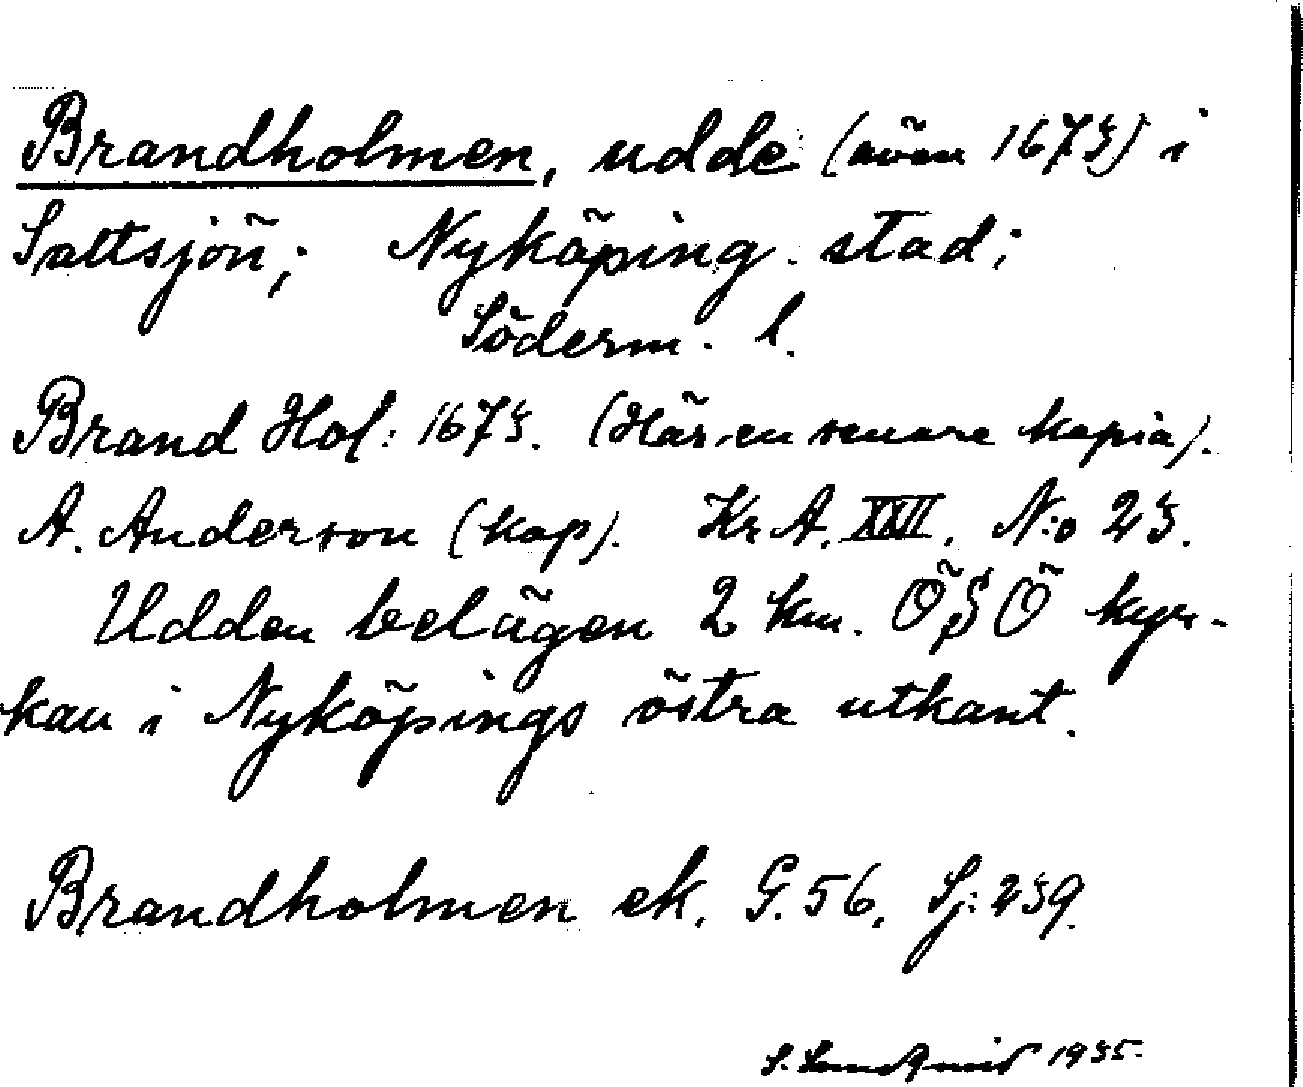 Brandholmen, udde (även 1673) i
Saltsjön; Nyköping. stad;
Söderm. l.
Brand Hol: 1673. (Här en senare kopia).
A. Anderson (kop). Kr A. XXII. N:o 23.
Udden belägen 2 km. ÖSÖ kyr-
kan i Nyköpings östra utkant.
Brandholmen ek. G. 56. Sj: 239.
S. 1935.